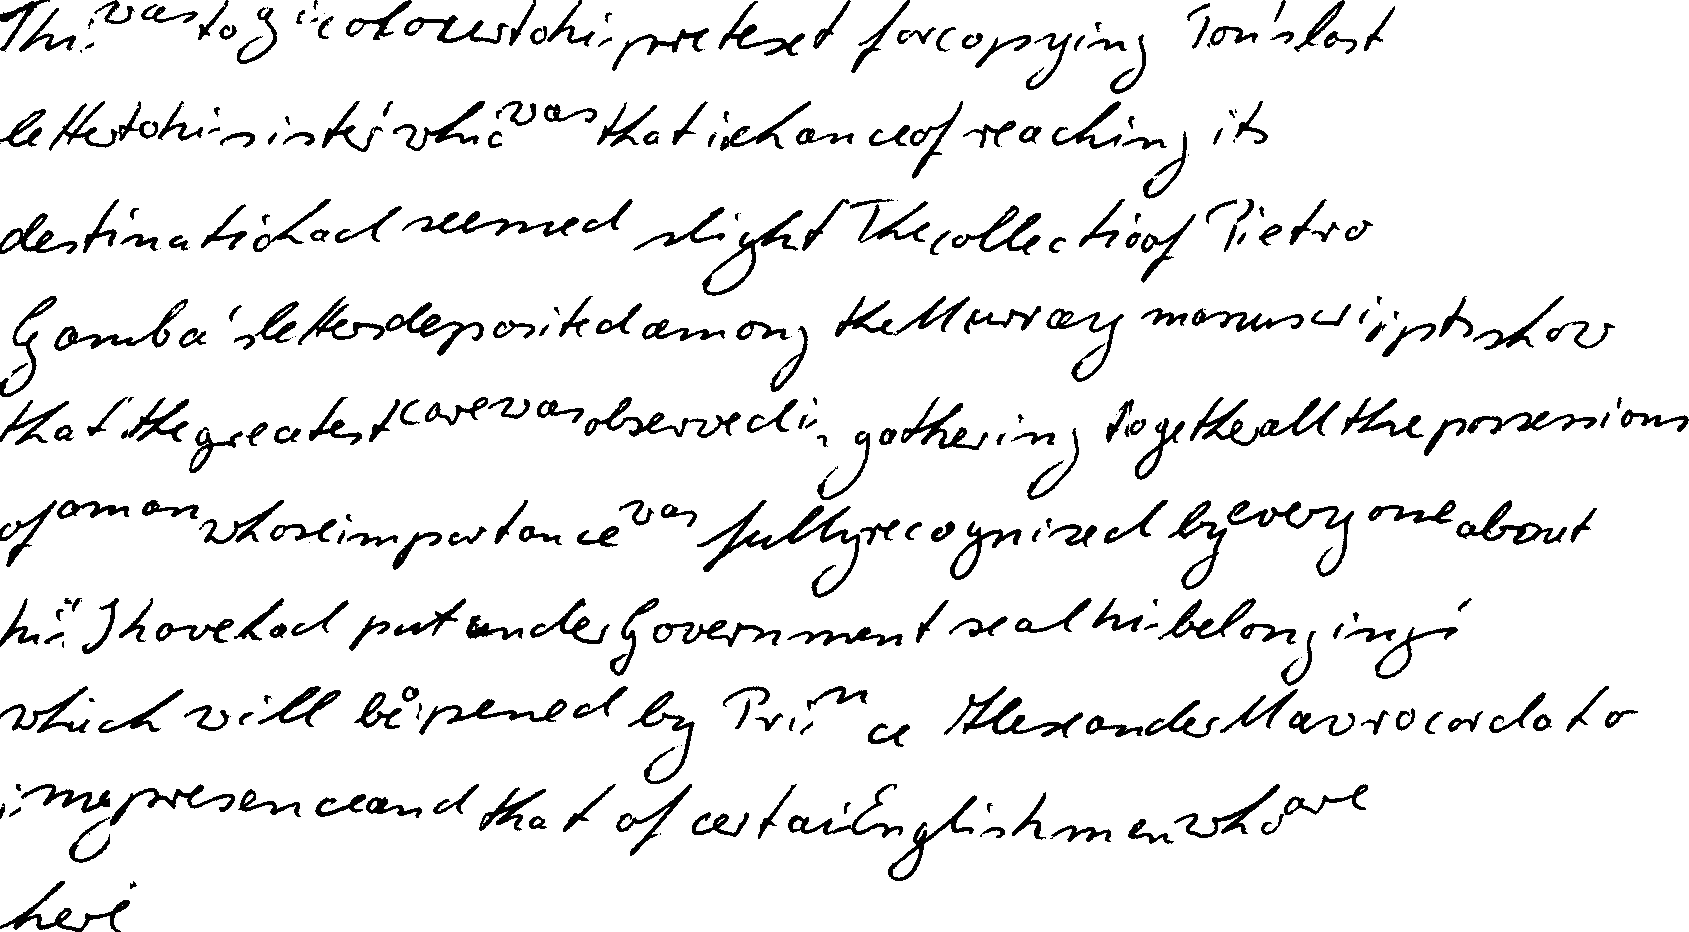 This was to give colour to his pretext for copying Tom's last
letter to his sister which was that its chance of reaching its
destination had seemed slight The collection of Pietro
Gamba's letters deposited among the Murray manuscripts show
that the greatest care was observed in gathering together all the possessions
of a man whose importance was fully recognized by everyone about
him I have had put under Government seal his belongings
which will be opened by Prince Alexander Mavrocordato
in my presence and that of certain Englishmen who are
here